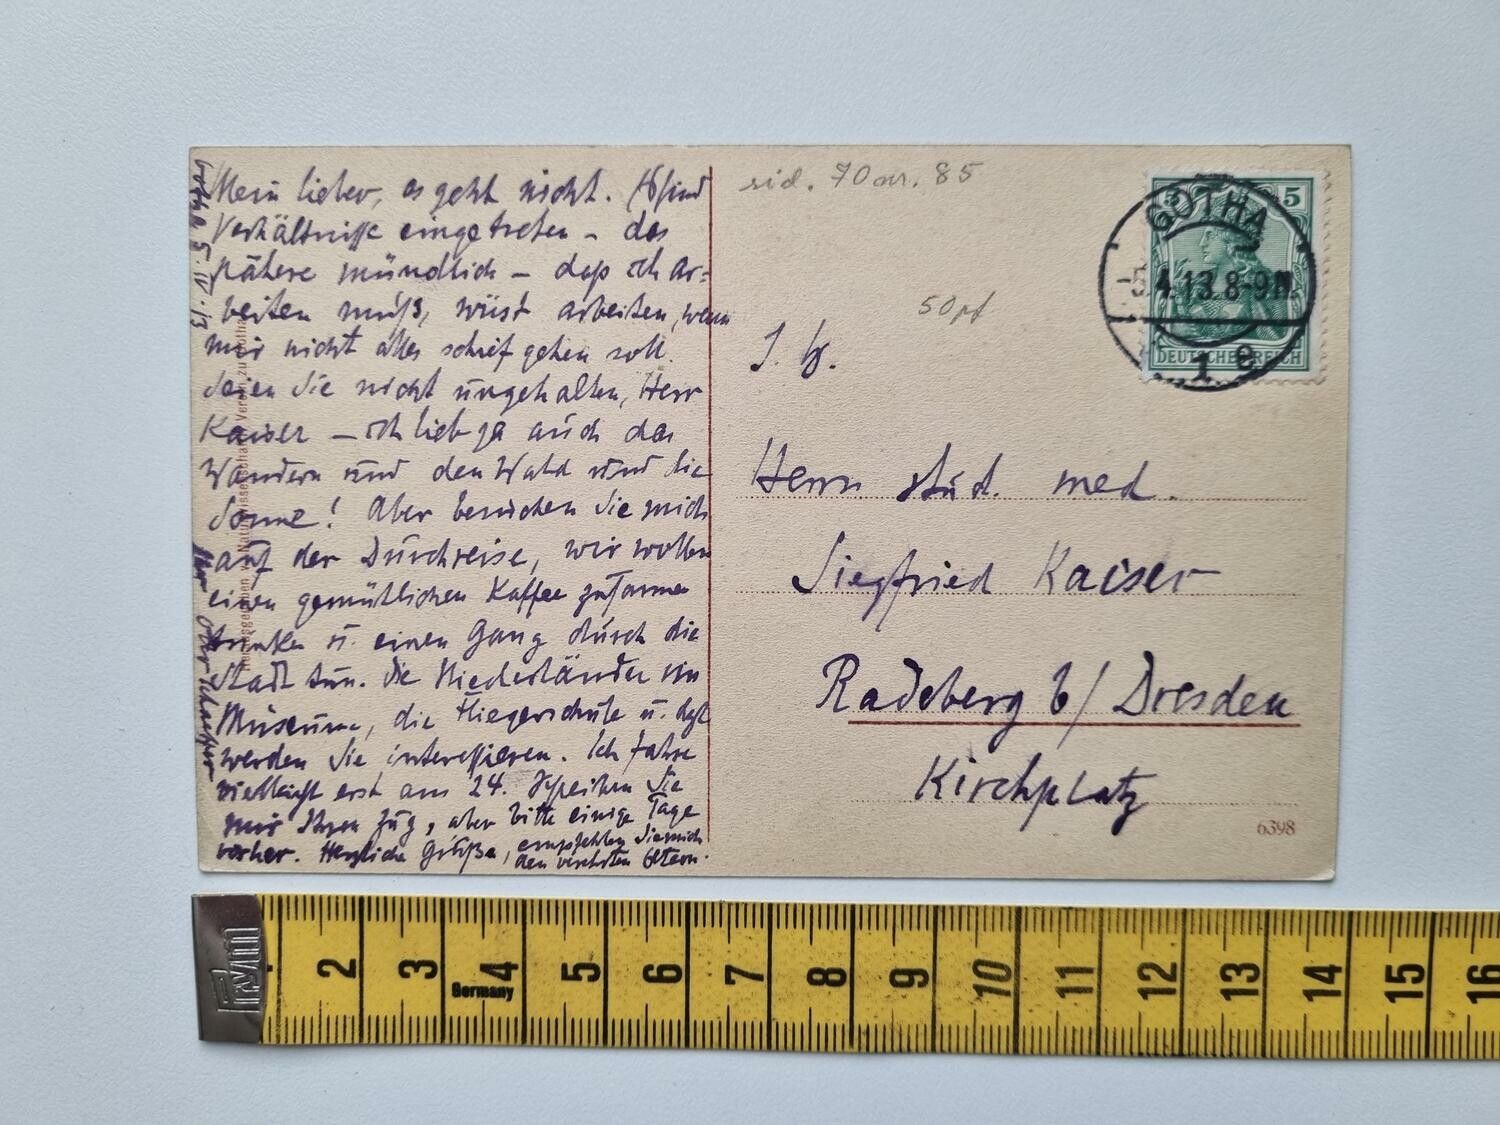 Gotha 5. IV. 13
Mein lieber, es geht nicht. Es sind
Verhältnisse eingetreten – das
spätere mündlich – dass ich ar=
beiten muß, wüst arbeiten, wenn
mir nicht alles schief gehen soll.
Seien Sie nicht ungehalten, Herr
Kaiser – ich lieb ja auch das
Wandern und den Wald und die
Sonne! Aber besuchen Sie mich
auf der Durchreise, wir wollen
einen gemütlichen Kaffee zusammen
trinken u. einen Gang durch die
Stadt tun. Die Niederländer im
Museum, die Fliegerschule u. dgl.
werden Sie interessieren. Ich fahre
vielleicht erst am 24. Schreiben Sie
mir Ihren Zug, aber bitte einige Tage
vorher. Herzliche Grüße, empfehlen Sie mich
den verehrten Eltern.
Ihr
sid. 70 er. 85
50 Pf
S. H.
Herrn stud. med.
Siegfried Kaiser
Radeberg b/ Dresden
Kirchplatz
6398
5 5
DEUTSCHES REICH
GOTHA
-5.4.13.8-9N
1 e
Naturwissenschaftl. Verein zu Gotha
2 3 4 5 6 7 8 9 10 11 12 13 14 15 16
Germany